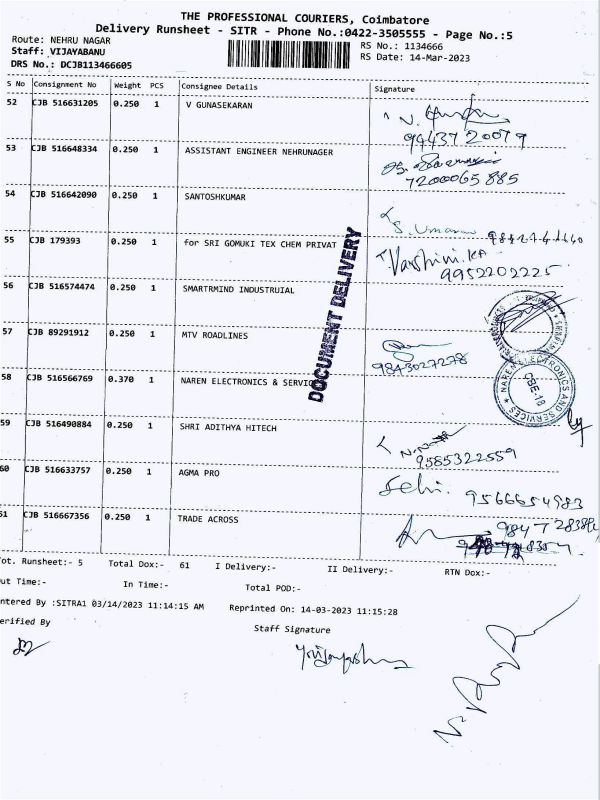 THE PROFESSIONAL COURIERS, Coimbatore
Delivery Runsheet - SITR - Phone No.:0422-3505555 - Page No.:5
Route: NEHRU NAGAR
RS No.: 1134666
Staff: VIJAYABANU
RS Date: 14-Mar-2023
DRS No.: DCJB113466605
S No Consignment No Weight PCS Consignee Details Signature
52 CJB 516631205 0.250 1 V GUNASEKARAN
9443720079
53 CJB 516648334 0.250 1 ASSISTANT ENGINEER NEHRUNAGER
7200065885
54 CJB 516642090 0.250 1 SANTOSHKUMAR
S. Umam
55 CJB 179393 0.250 1 for SRI GOMUKI TEX CHEM PRIVAT
Varshini.KA
9952202225
56 CJB 516574474 0.250 1 SMARTRMIND INDUSTRUIAL
57 CJB 89291912 0.250 1 MTV ROADLINES
9843027278
58 CJB 516566769 0.370 1 NAREN ELECTRONICS & SERVIC
DOCUMENT DELIVERY
NAREN ELECTRONICS AND SERVICES
CBE-18
59 CJB 516490884 0.250 1 SHRI ADITHYA HITECH
9585322559
60 CJB 516633757 0.250 1 AGMA PRO
Selvi.
9566654983
61 CJB 516667356 0.250 1 TRADE ACROSS
ot. Runsheet:- 5 Total Dox:- 61 I Delivery:- II Delivery:- RTN Dox:-
ut Time:- In Time:- Total POD:-
ntered By :SITRA1 03/14/2023 11:14:15 AM Reprinted On: 14-03-2023 11:15:28
erified By Staff Signature